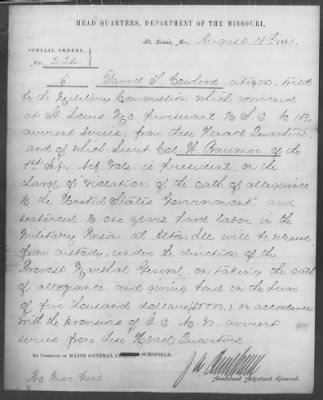 HEAD QUARTERS, DEPARTMENT OF THE MISSOURI,
St. Louis, Mo., August 186
SPECIAL ORDERS,
No.
David S. citizen, tried
by the Military Commission which convened
at St Louis Mo pursuant to S.O. No
current series, from these Head Quarters
and of which Lieut Col. of the
1st Vols. is president, on the
charge of "Violation of the oath of allegiance
to the United States Government" and
sentenced to one years hard labor in the
Military Prison at Alton Ills will be released
from custody, under the direction of the
Provost Marshal General, on taking the oath
of allegiance and giving bond in the sum
of five thousand dollars in accordance
with the provisions of G.O. No current
series from these Head Quarters
BY COMMAND OF MAJOR GENERAL SCHOFIELD.
Assistant Adjutant General.
Pro Mar Genl